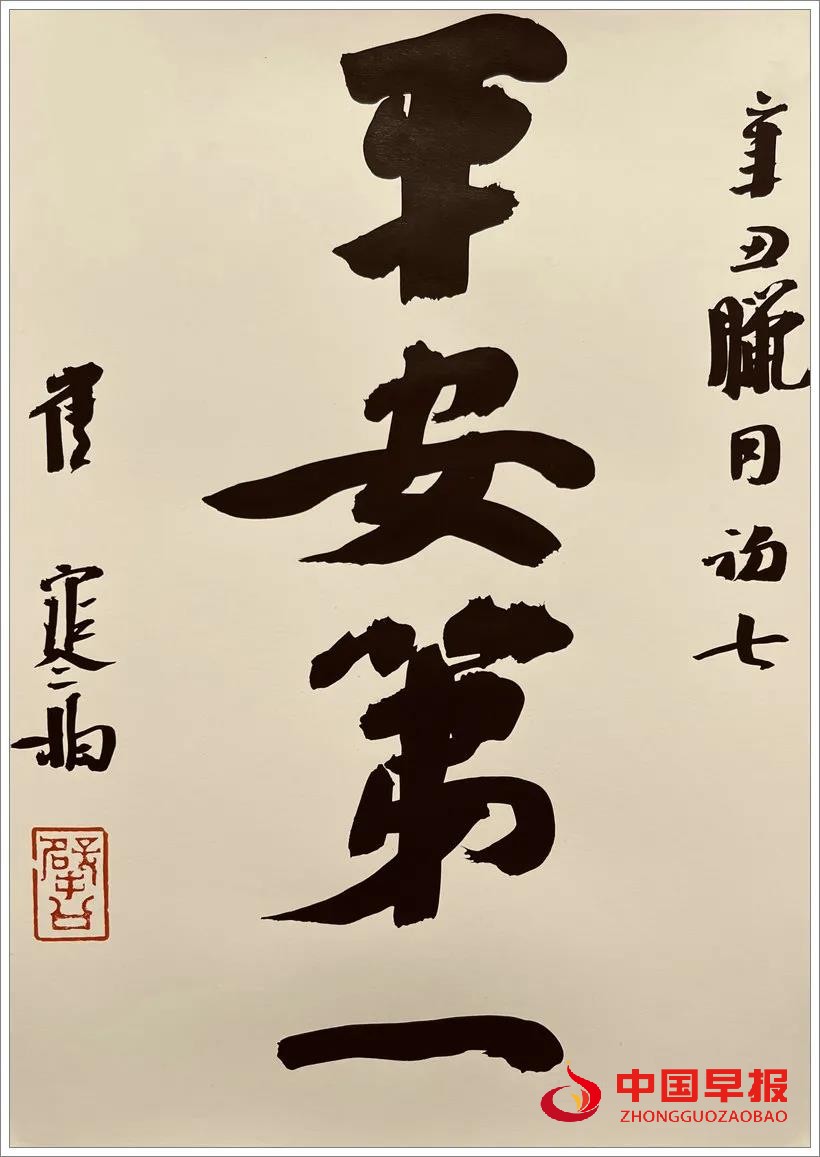 辛丑臘月初七
平安第一
崔寒柏
中国早报
ZHONGGUOZAOBAO